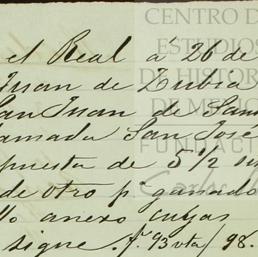 el Real á 26 de
Juan de Zubia
San Juan de San
amada San José
puesta de 5 1/2 su
de otro p. ganado
llo anexo cuyas
sigue. f. 93 vta/98.
CENTRO D
ESTUDIOS
DE HISTOR
DE MÉXIC
FUNDACI
Carlos